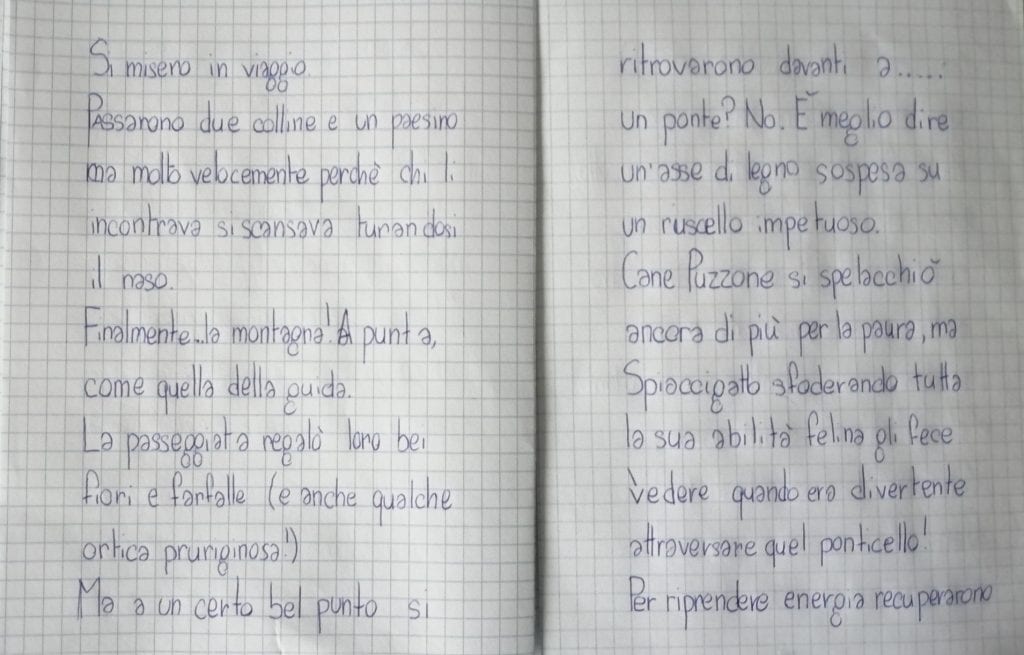 Si misero in viaggio.
Passarono due colline e un paesino
ma molto velocemente perchè chi li
incontrava si scansava turandosi
il naso.
Finalmente...la montagna! A punta,
come quella della guida.
La passeggiata regalò loro bei
fiori e farfalle (e anche qualche
ortica pruriginosa!)
Ma a un certo bel punto si
ritrovarono davanti a.....
un ponte? No. È meglio dire
un'asse di legno sospesa su
un ruscello impetuoso.
Cane Puzzone si spelacchiò
ancora di più per la paura, ma
Spiaccigatto sfoderando tutta
la sua abilità felina gli fece
vedere quando era divertente
attraversare quel ponticello!
Per riprendere energia recuperarono